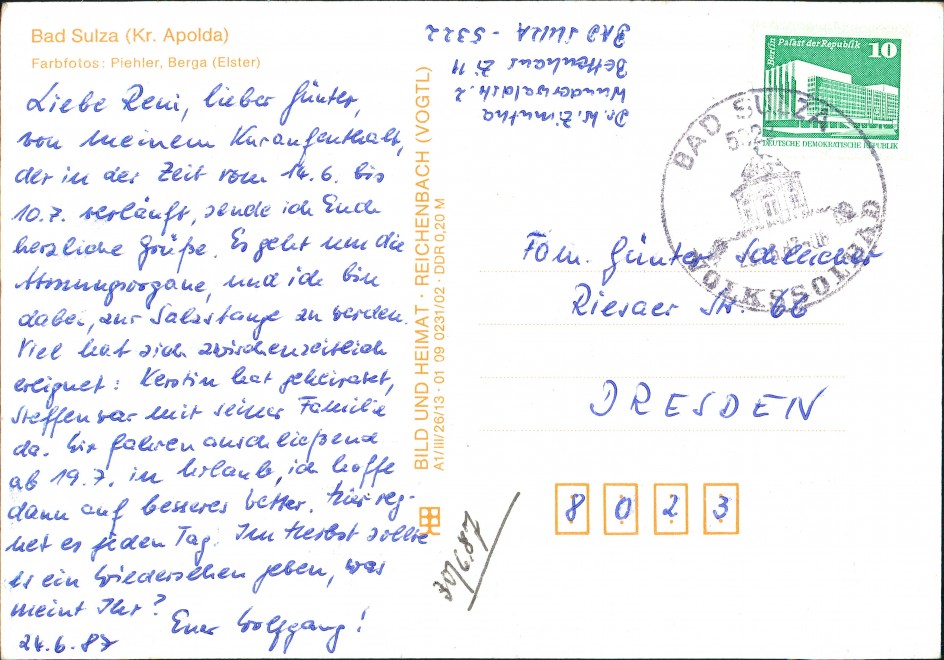 Bad Sulza (Kr. Apolda)
Farbfotos: Piehler, Berga (Elster)
Liebe Reni, lieber Günter,
von meinem Kuraufenthalt,
der in der Zeit vom 14.6. bis
10.7. verläuft, sende ich Euch
herzliche Grüße. Es geht um die
Atmungsorgane, und ich bin
dabei, zur Salzstange zu werden.
Viel hat sich zwischenzeitlich
ereignet: Kerstin hat geheiratet,
Steffen war mit seiner Familie
da. Wir fahren anschließend
ab 19.7. in Urlaub, ich hoffe
dann auf besseres Wetter. Hier reg-
net es jeden Tag. Im Herbst sollte
es ein Wiedersehen geben, was
meint Ihr?
Euer Wolfgang!
24.6.87
BILD UND HEIMAT · REICHENBACH (VOGTL)
A1/III/26/13 · 01 09 0231/02 · DDR 0,20 M
Dr. W. Zimutha
Wunderwaldstr. 2
Bettenhaus Zi 11
BAD SULZA - 5322
Berlin Palast der Republik 10
DEUTSCHE DEMOKRATISCHE REPUBLIK
BAD SULZA
VOLKSSOLBAD
Fam. Günter Schleicher
Riesaer Str. 66
DRESDEN
8023
30/6.87